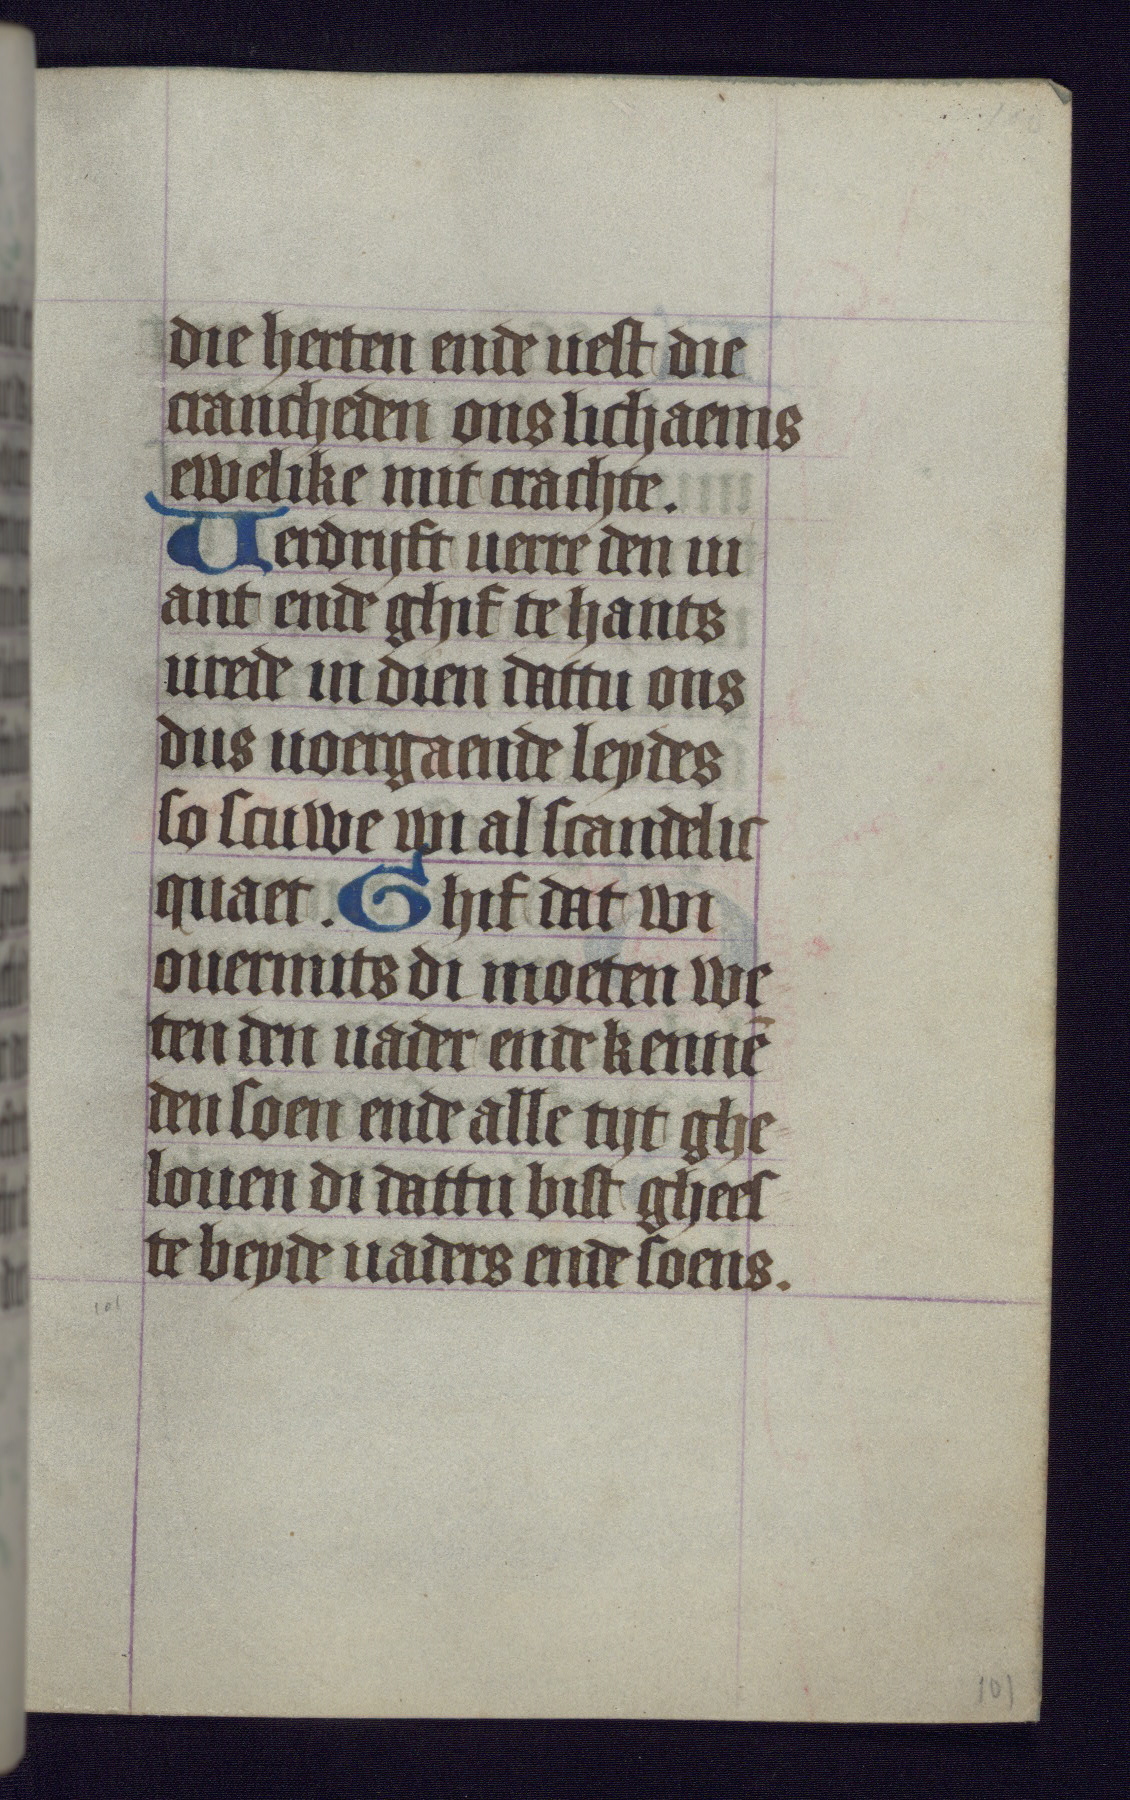 die herten ende uest die
crancheden ons lichaems
ewelike mit crachte.
Uerdrijft uerre den ui
ant ende ghif te hants
urede in dien dattu ons
dus uoergaende leydes
so scuwe wi al scandelic
quaet. Ghif dat wi
ouermits di moeten we
ten den uader ende kennē
den soen ende alle tijt ghe
louen di dattu bist ghees
te beyde uaders ende soens.
101
101